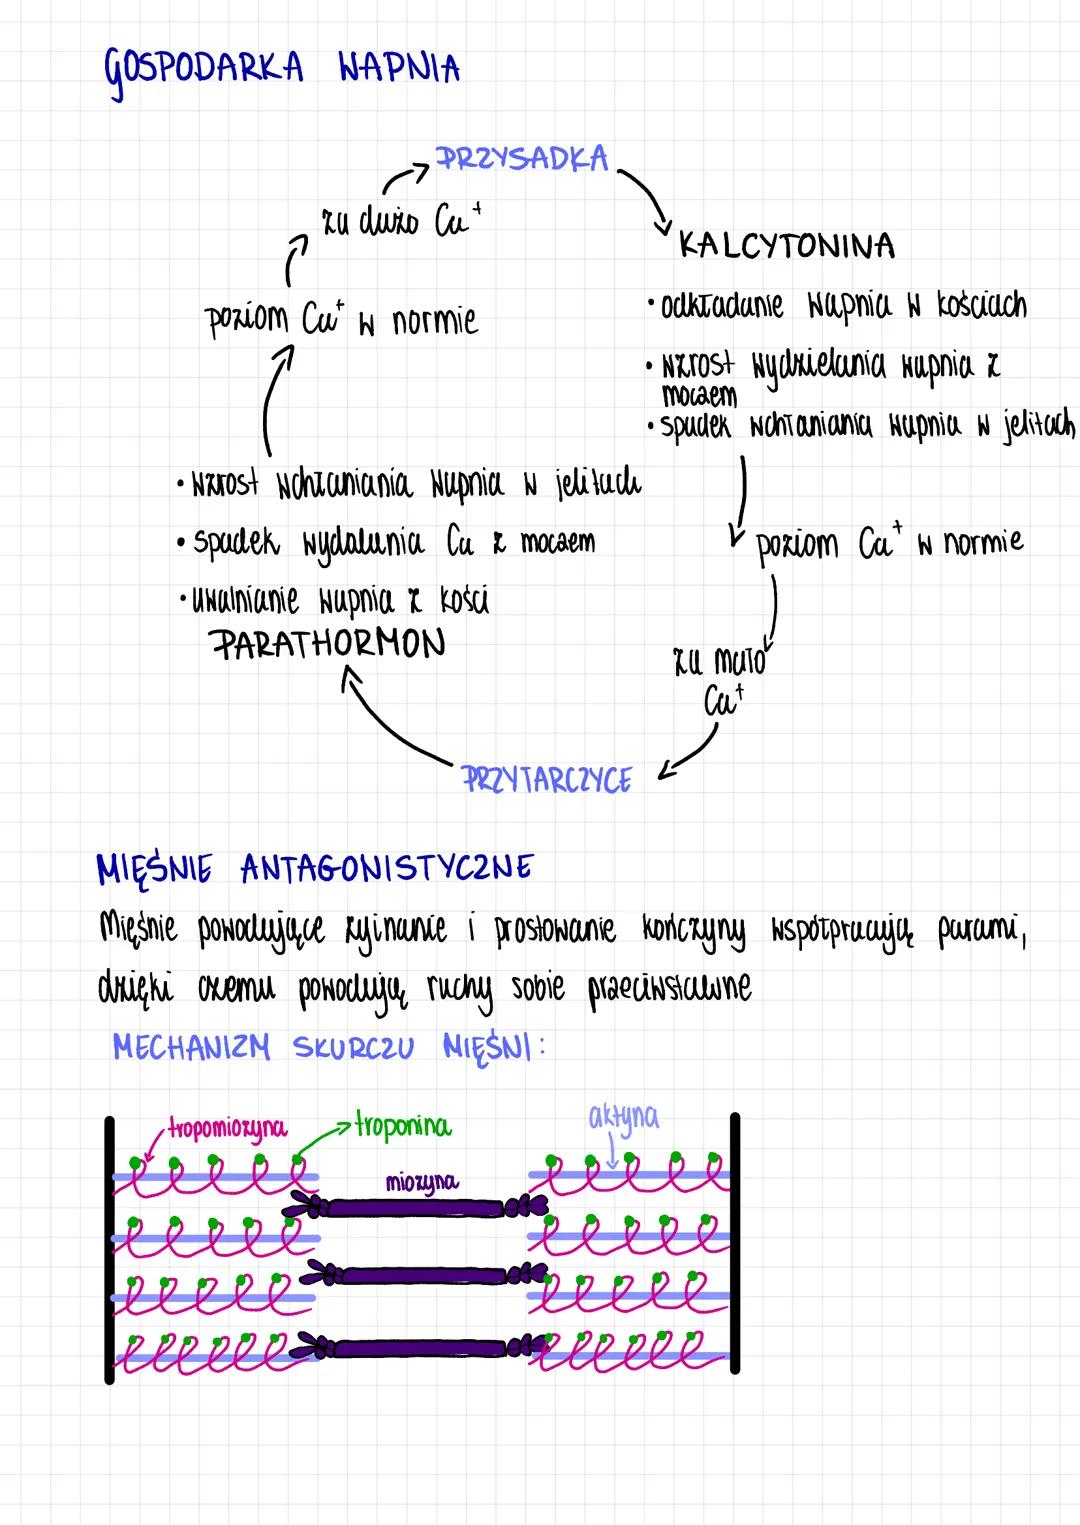 GOSPODARKA WAPNIA
PRZYSADKA
za dużo Ca⁺
KALCYTONINA
poziom Ca⁺ w normie
• odkładanie wapnia w kościach
• wzrost wydzielania wapnia z
moczem
• spadek wchłaniania wapnia w jelitach
• wzrost wchłaniania wapnia w jelitach
• spadek wydalania Ca z moczem
poziom Ca⁺ w normie
• uwalnianie wapnia z kości
PARATHORMON
za mało
Ca⁺
PRZYTARCZYCE
MIĘŚNIE ANTAGONISTYCZNE
Mięśnie powodujące zginanie i prostowanie kończyny współpracują parami,
dzięki czemu powodują ruchy sobie przeciwstawne
MECHANIZM SKURCZU MIĘŚNI:
tropomiozyna
troponina
aktyna
miozyna